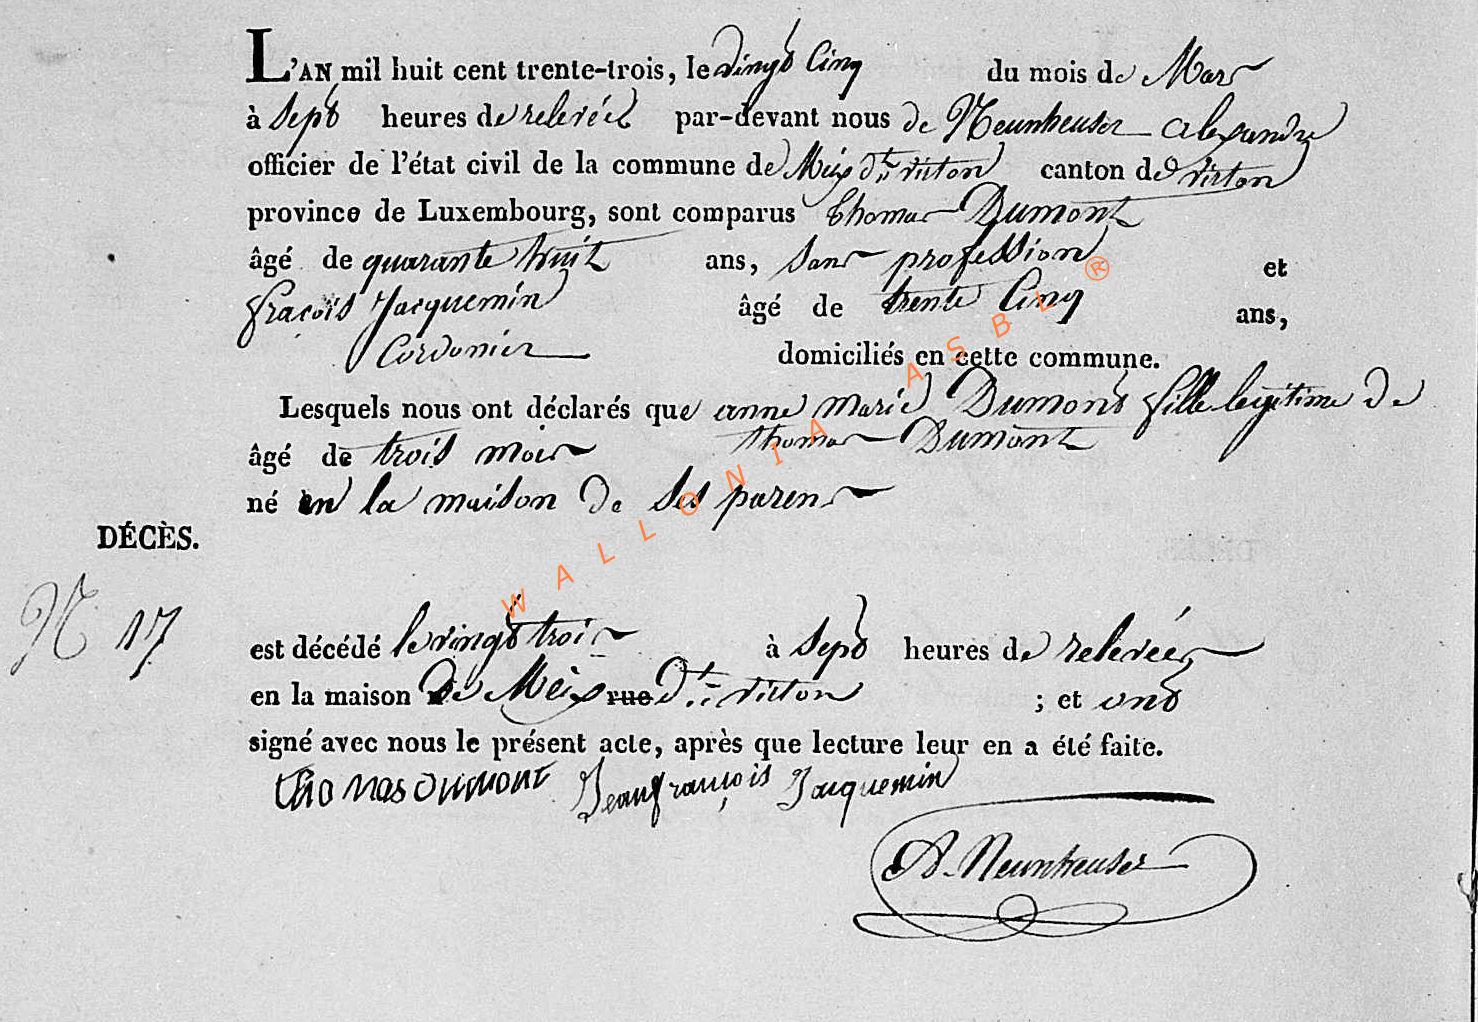 L'AN mil huit cent trente-trois, le vingt Cinq du mois de Mars
à Sept heures de relevée par-devant nous de Neunheuser alexandre
officier de l'état civil de la commune de Meix dt virton canton de virton
province de Luxembourg, sont comparus thomas Dumont
âgé de quarante huit ans, sans profession et
fraçois Jacquemin âgé de trente Cinq ans,
Cordonier domiciliés en cette commune.
Lesquels nous ont déclarés que anne marie Dumont fille legitime de
âgé de trois mois thomas Dumont
né en la maison de ses parens
DÉCÈS.
N 17
est décédé le vingt trois à Sept heures de relevée
en la maison de Meix rue dt virton ; et ont
signé avec nous le présent acte, après que lecture leur en a été faite.
thomas Dumont Jean françois Jacquemin
A. Neunheuser
WALLONIA ASBL ®